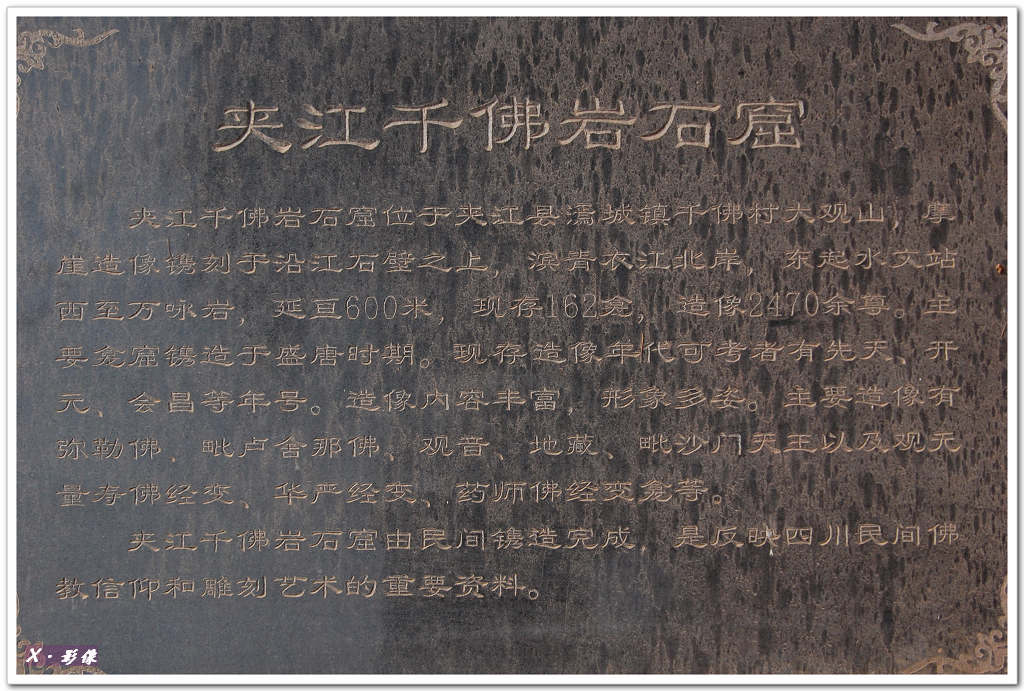 夹江千佛岩石窟
夹江千佛岩石窟位于夹江县漹城镇千佛村大观山，摩
崖造像镌刻于沿江石壁之上，滨青衣江北岸，东起水文站
西至万咏岩，延亘600米，现存162龛，造像2470余尊。主
要龛窟镌造于盛唐时期。现存造像年代可考者有先天、开
元、会昌等年号。造像内容丰富，形象多姿。主要造像有
弥勒佛、毗卢舍那佛、观音、地藏、毗沙门天王以及观无
量寿佛经变、华严经变、药师佛经变龛等。
夹江千佛岩石窟由民间镌造完成，是反映四川民间佛
教信仰和雕刻艺术的重要资料。
X·影像